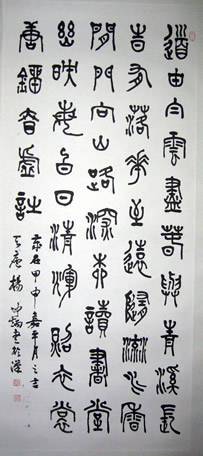 道由白雲盡春與青溪長
時有落花至遠隨流水香
閒門向山路深柳讀書堂
幽映每白日清輝照衣裳
唐劉昚虛詩
歲在甲申嘉平月之吉
庵楊書於漢